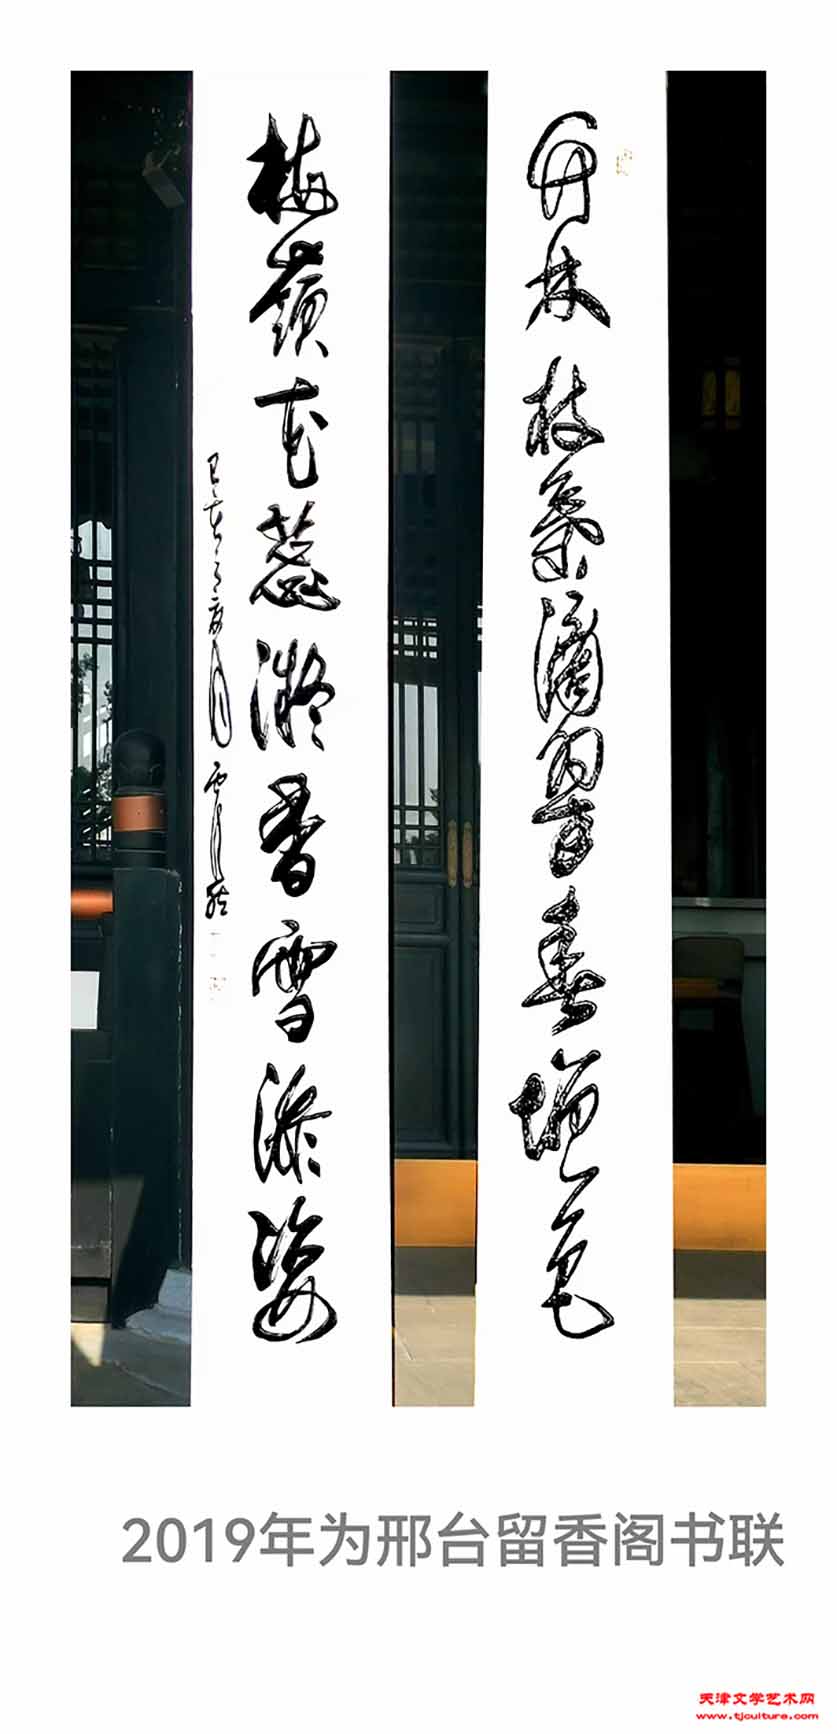 竹林枝葉滴翠春增色
梅嶺花蕊凝香雪添姿
己亥之夏月
2019年为邢台留香阁书联
天津文学艺术网
www.tjculture.com